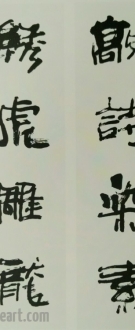 敲詩染素
繡虎雕龍
eart.com